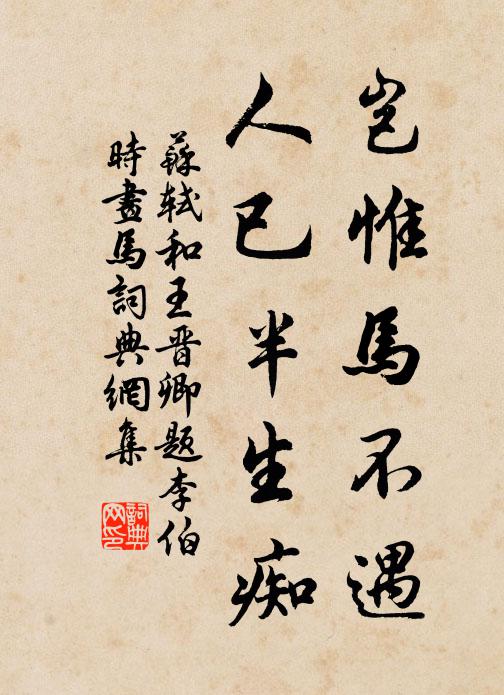 豈惟馬不遇
人已半生痴
蘇軾和王晋卿題李伯
時畫馬詞典網集
詞典
网印